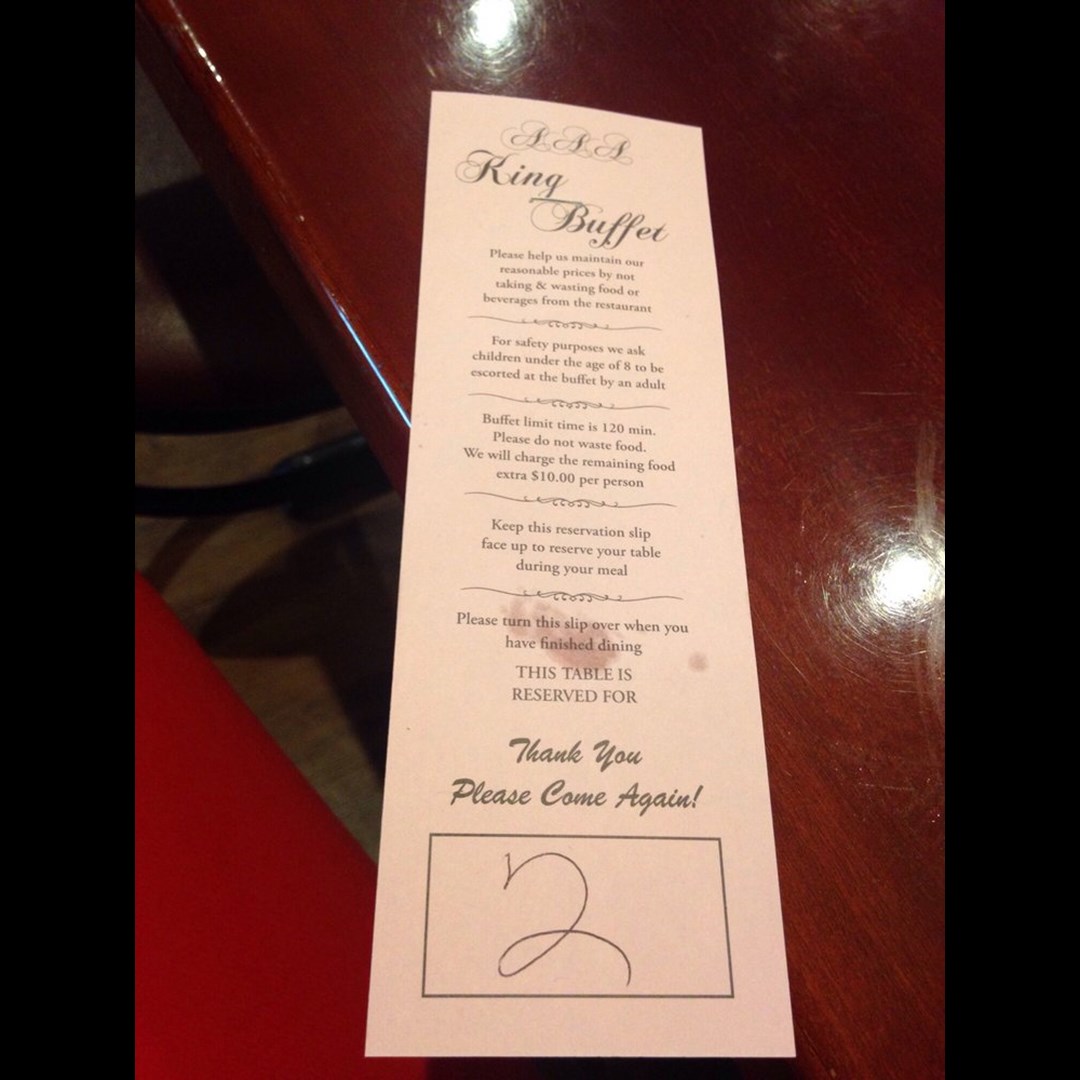 AAA
King
Buffet
Please help us maintain our
reasonable prices by not
taking & wasting food or
beverages from the restaurant
For safety purposes we ask
children under the age of 8 to be
escorted at the buffet by an adult
Buffet limit time is 120 min.
Please do not waste food.
We will charge the remaining food
extra $10.00 per person
Keep this reservation slip
face up to reserve your table
during your meal
Please turn this slip over when you
have finished dining
THIS TABLE IS
RESERVED FOR
Thank You
Please Come Again!
2